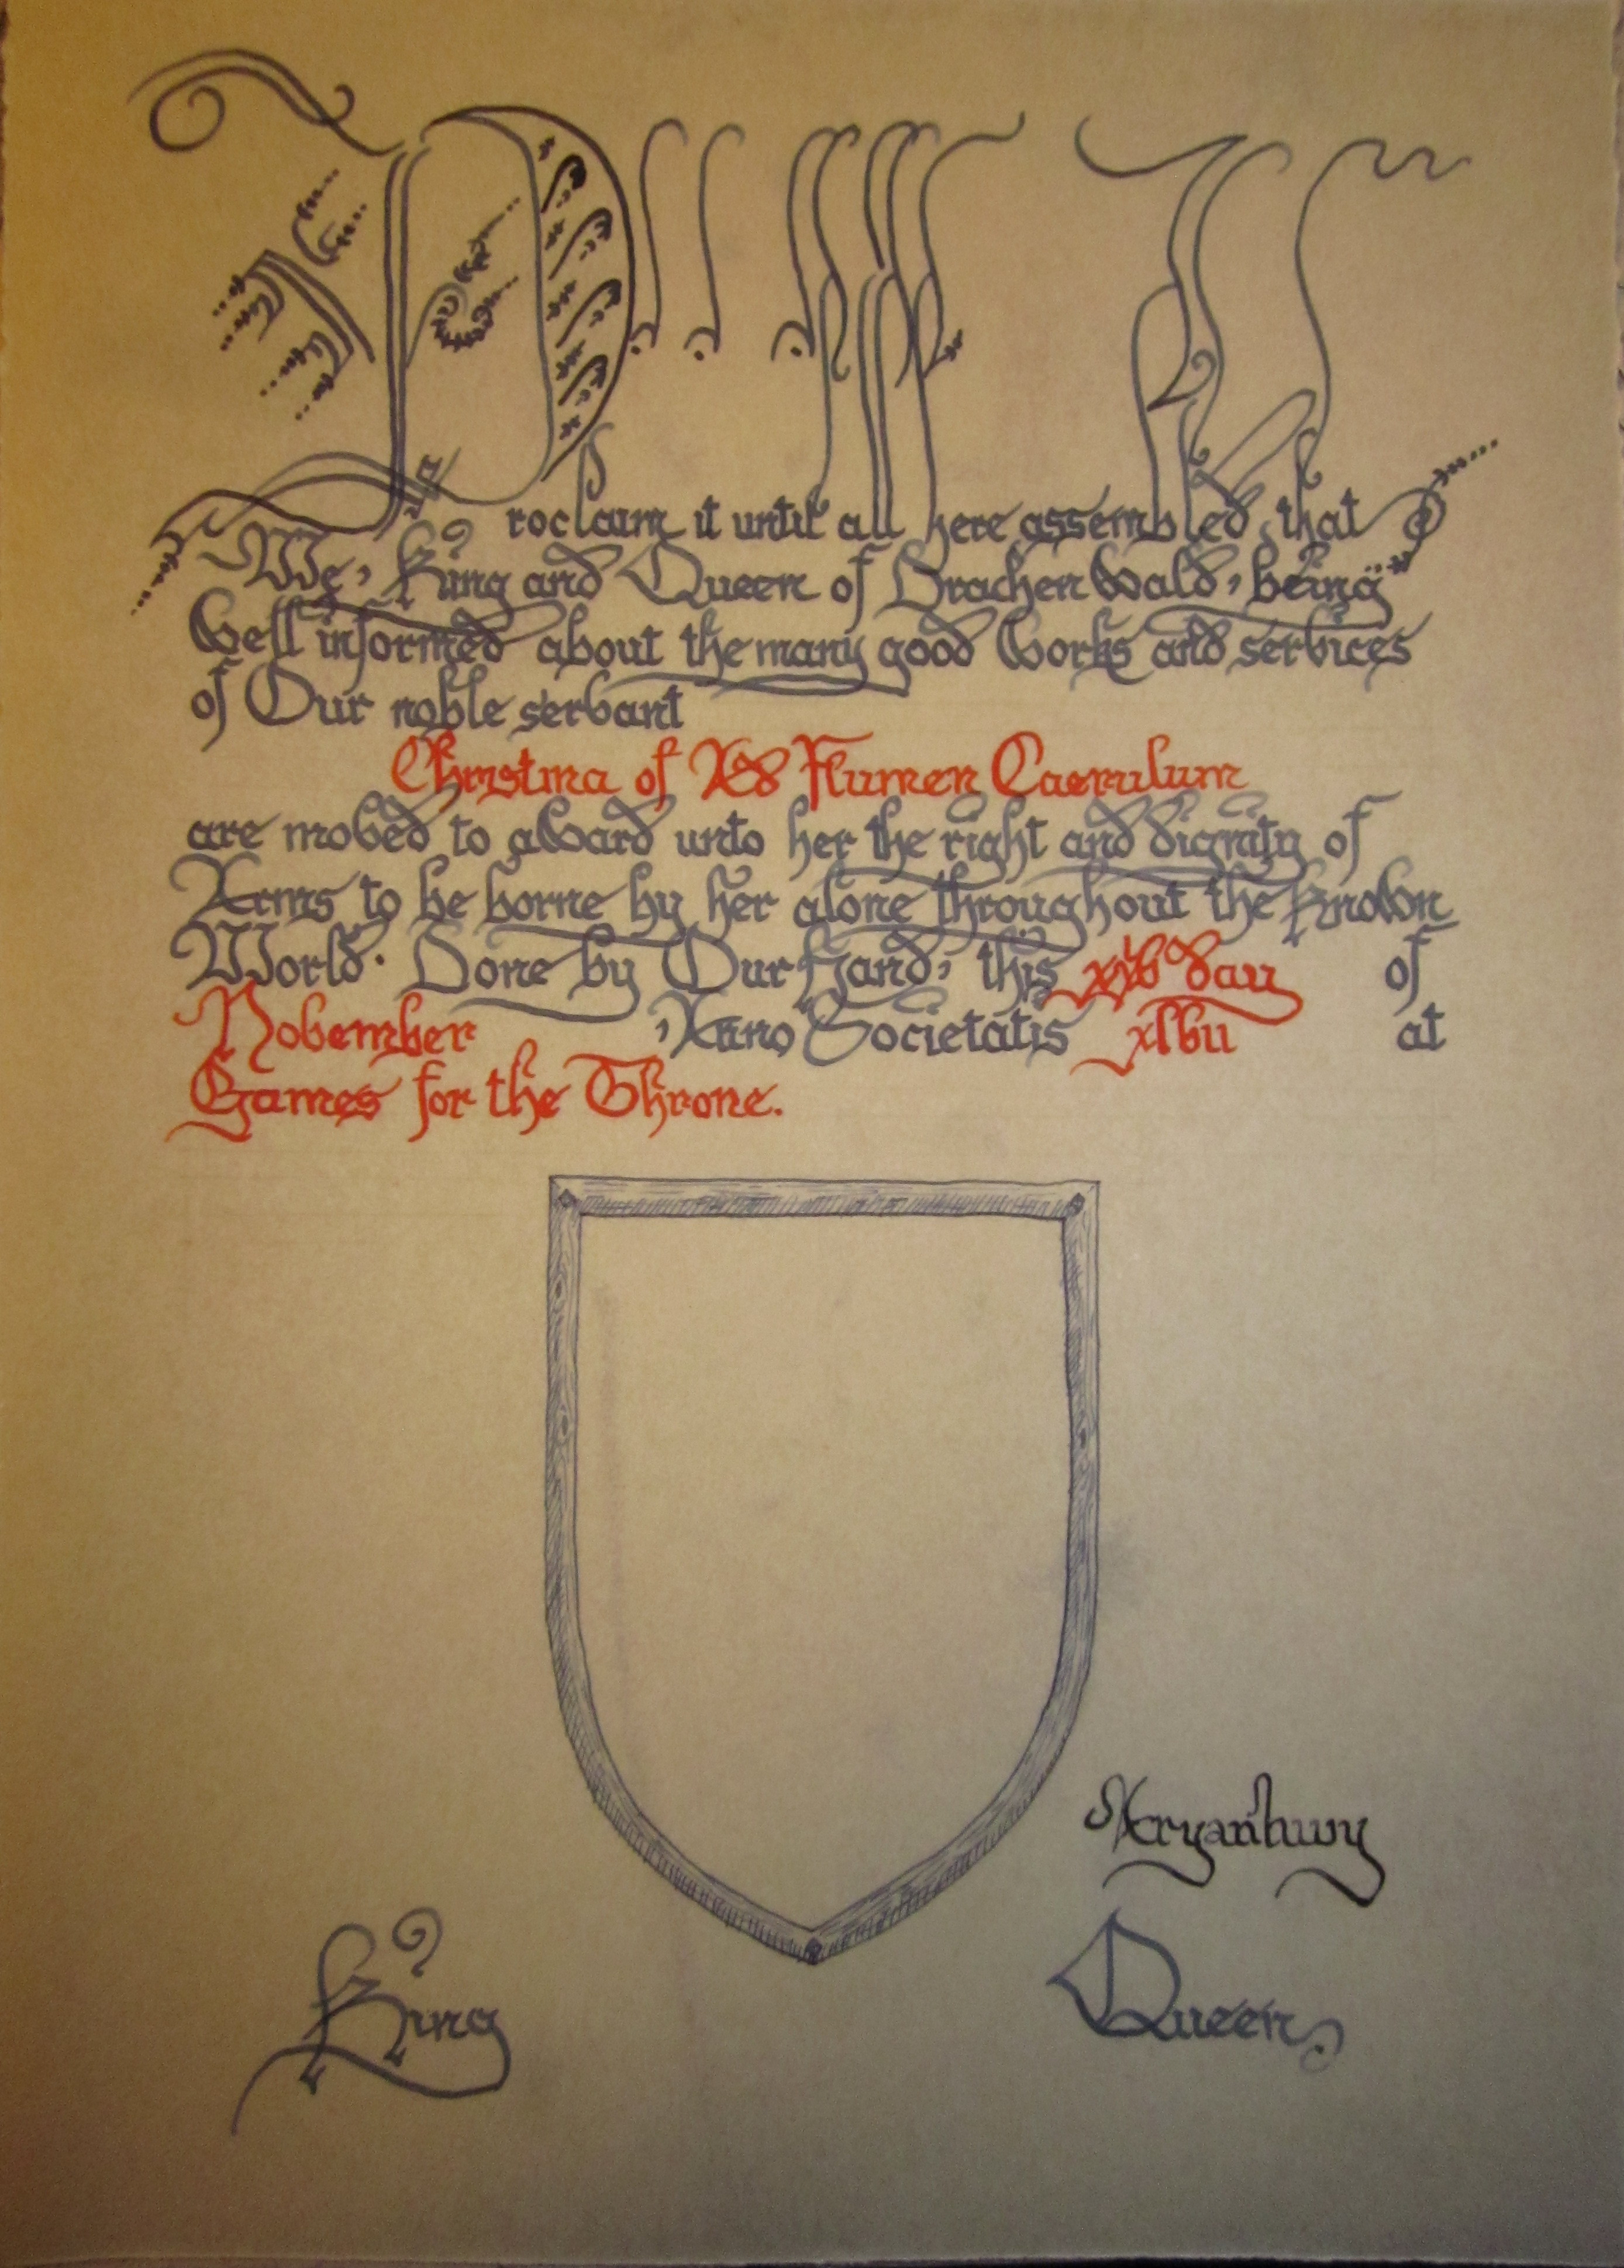 Proclaim it until all here assembled, that
We, King and Queen of Drachenwald, being
well informed about the many good works and services
of Our noble servant
Christina of Ad Flumen Caerulum
are moved to award unto her the right and dignity of
Arms to be borne by her alone throughout the Known
World. Done by Our Hand, this xxiv day of
November, Anno Societatis xlvii at
Games for the Throne.
Aryanhwy
King Queen